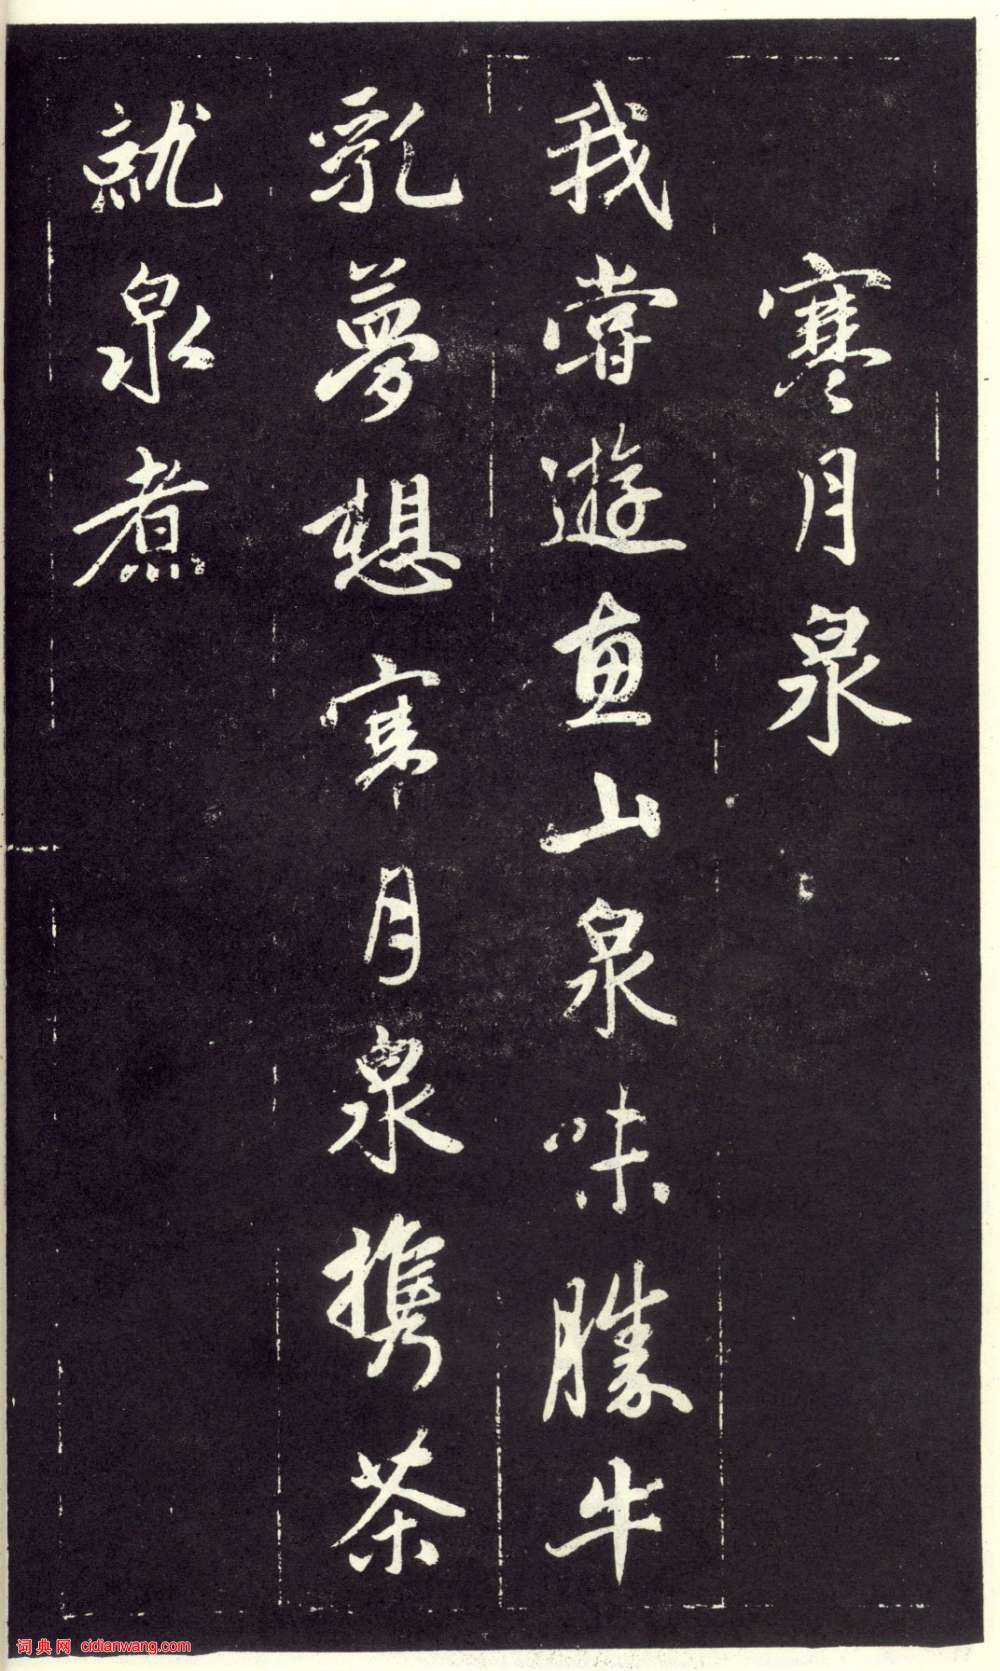 寒月泉
我嘗遊惠山泉味勝牛
乳夢想寒月泉攜茶
就泉煮
词典网 cidianwang.com